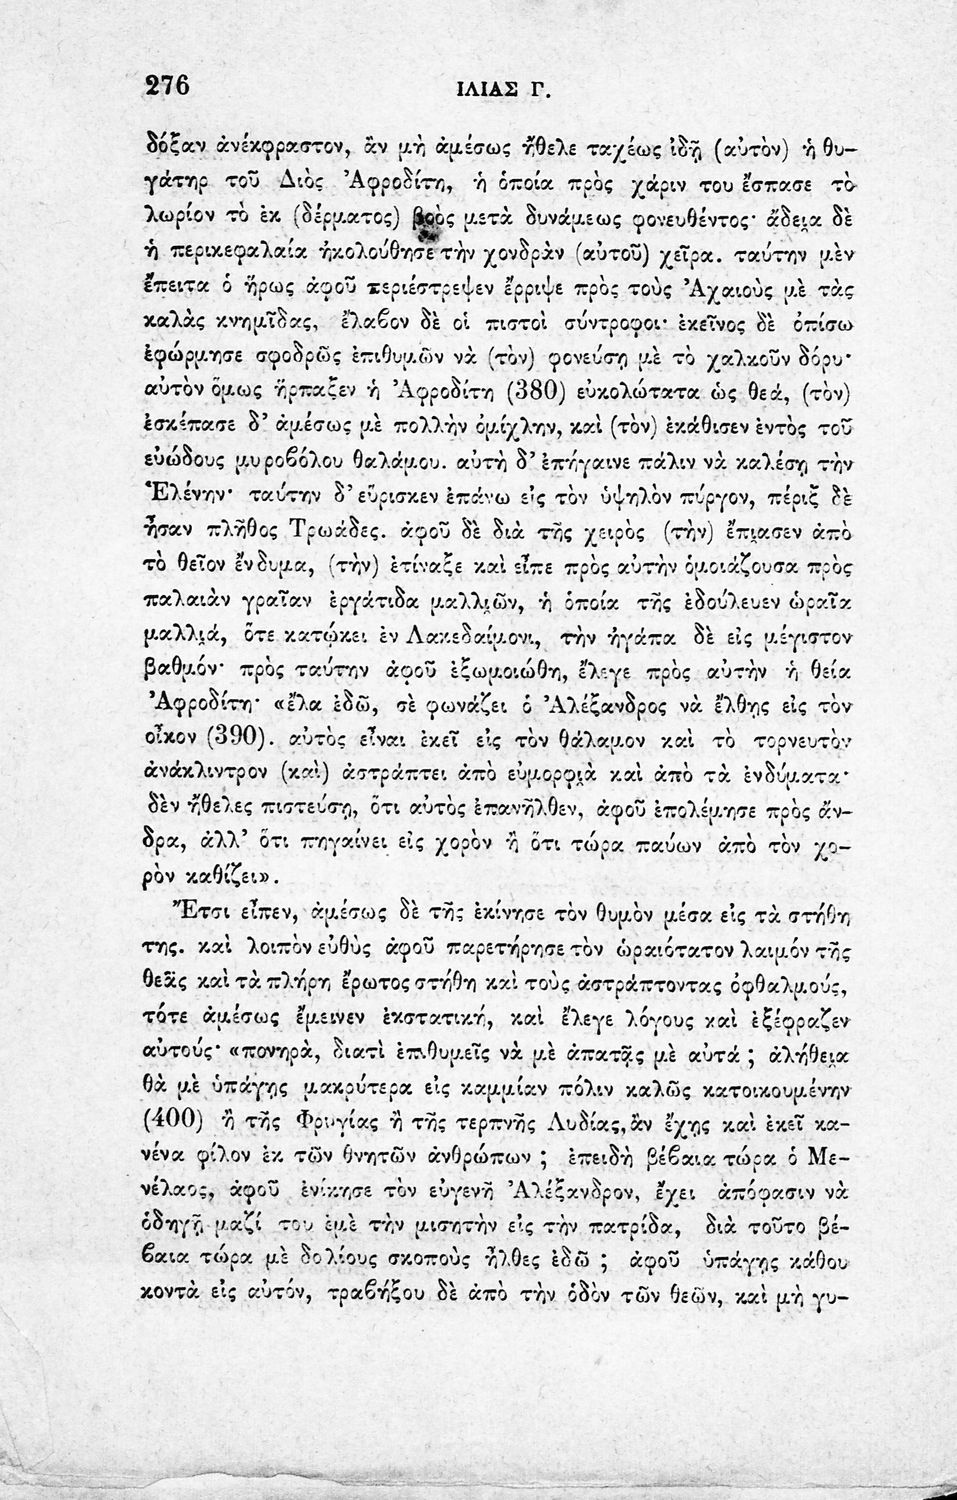 276
ΙΛΙΑΣ Γ.
δόξαν ἀνέκφραστον, ἂν μὴ ἀμέσως ἤθελε ταχέως ἰδῇ (αὐτὸν) ἡ θυ-
γάτηρ τοῦ Διὸς Ἀφροδίτη, ἡ ὁποία πρὸς χάριν του ἔσπασε τὸ
λωρίον τὸ ἐκ (δέρματος) βοὸς μετὰ δυνάμεως φονευθέντος· ἄδεια δὲ
ἡ περικεφαλαία ἠκολούθησε τὴν χονδρὰν (αὐτοῦ) χεῖρα. ταύτην μὲν
ἔπειτα ὁ ἥρως ἀφοῦ περιέστρεψεν ἔρριψε πρὸς τοὺς Ἀχαιοὺς μὲ τὰς
καλὰς κνημῖδας, ἔλαβον δὲ οἱ πιστοὶ σύντροφοι· ἐκεῖνος δὲ ὀπίσω
ἐφώρμησε σφοδρῶς ἐπιθυμῶν νὰ (τὸν) φονεύσῃ μὲ τὸ χαλκοῦν δόρυ·
αὐτὸν ὅμως ἥρπαξεν ἡ Ἀφροδίτη (380) εὐκολώτατα ὡς θεά, (τὸν)
ἐσκέπασε δ' ἀμέσως μὲ πολλὴν ὀμίχλην, καὶ (τὸν) ἐκάθισεν ἐντὸς τοῦ
εὐώδους μυροβόλου θαλάμου. αὐτὴ δ' ἐπήγαινε πάλιν νὰ καλέσῃ τὴν
Ἑλένην· ταύτην δ' εὕρισκεν ἐπάνω εἰς τὸν ὑψηλὸν πύργον, πέριξ δὲ
ἦσαν πλῆθος Τρωάδες. ἀφοῦ δὲ διὰ τῆς χειρὸς (τὴν) ἔπιασεν ἀπὸ
τὸ θεῖον ἔνδυμα, (τὴν) ἐτίναξε καὶ εἶπε πρὸς αὐτὴν ὁμοιάζουσα πρὸς
παλαιὰν γραῖαν ἐργάτιδα μαλλιῶν, ἡ ὁποία τῆς ἐδούλευεν ὡραῖα
μαλλιά, ὅτε κατῴκει ἐν Λακεδαίμονι, τὴν ἠγάπα δὲ εἰς μέγιστον
βαθμόν· πρὸς ταύτην ἀφοῦ ἐξωμοιώθη, ἔλεγε πρὸς αὐτὴν ἡ θεία
Ἀφροδίτη· «ἔλα ἐδῶ, σὲ φωνάζει ὁ Ἀλέξανδρος νὰ ἔλθῃς εἰς τὸν
οἶκον (390). αὐτὸς εἶναι ἐκεῖ εἰς τὸν θάλαμον καὶ τὸ τορνευτὸν
ἀνάκλιντρον (καὶ) ἀστράπτει ἀπὸ εὐμορφιὰ καὶ ἀπὸ τὰ ἐνδύματα·
δὲν ἤθελες πιστεύσῃ, ὅτι αὐτὸς ἐπανῆλθεν, ἀφοῦ ἐπολέμησε πρὸς ἄν-
δρα, ἀλλ' ὅτι πηγαίνει εἰς χορὸν ἢ ὅτι τώρα παύων ἀπὸ τὸν χο-
ρὸν καθίζει».
Ἔτσι εἶπεν, ἀμέσως δὲ τῆς ἐκίνησε τὸν θυμὸν μέσα εἰς τὰ στήθη
της. καὶ λοιπὸν εὐθὺς ἀφοῦ παρετήρησε τὸν ὡραιότατον λαιμόν τῆς
θεᾶς καὶ τὰ πλήρη ἔρωτος στήθη καὶ τοὺς ἀστράπτοντας ὀφθαλμούς,
τότε ἀμέσως ἔμεινεν ἐκστατική, καὶ ἔλεγε λόγους καὶ ἐξέφραζεν
αὐτούς· «πονηρὰ, διατὶ ἐπιθυμεῖς νὰ μὲ ἀπατᾷς μὲ αὐτά ; ἀλήθεια
θὰ μὲ ὑπάγῃς μακρύτερα εἰς καμμίαν πόλιν καλῶς κατοικουμένην
(400) ἢ τῆς Φρυγίας ἢ τῆς τερπνῆς Λυδίας, ἂν ἔχῃς καὶ ἐκεῖ κα-
νένα φίλον ἐκ τῶν θνητῶν ἀνθρώπων ; ἐπειδὴ βέβαια τώρα ὁ Με-
νέλαος, ἀφοῦ ἐνίκησε τὸν εὐγενῆ Ἀλέξανδρον, ἔχει ἀπόφασιν νὰ
ὁδηγῇ μαζί του ἐμὲ τὴν μισητὴν εἰς τὴν πατρίδα, διὰ τοῦτο βέ-
βαια τώρα μὲ δολίους σκοποὺς ἦλθες ἐδῶ ; ἀφοῦ ὑπάγῃς κάθου
κοντὰ εἰς αὐτόν, τραβήξου δὲ ἀπὸ τὴν ὁδὸν τῶν θεῶν, καὶ μὴ γυ-